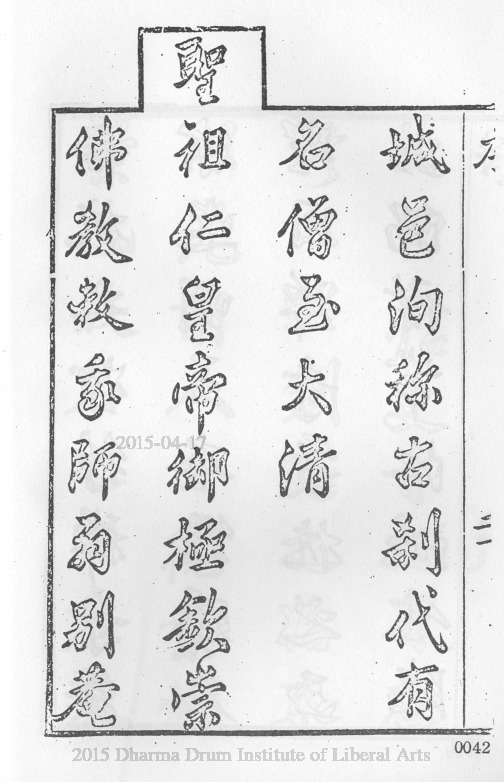 城邑洵称古剎代有
名僧至大清
聖祖仁皇帝御極欽崇
佛教敕家師翁別菴
二
2015-04-17
2015 Dharma Drum Institute of Liberal Arts
0042